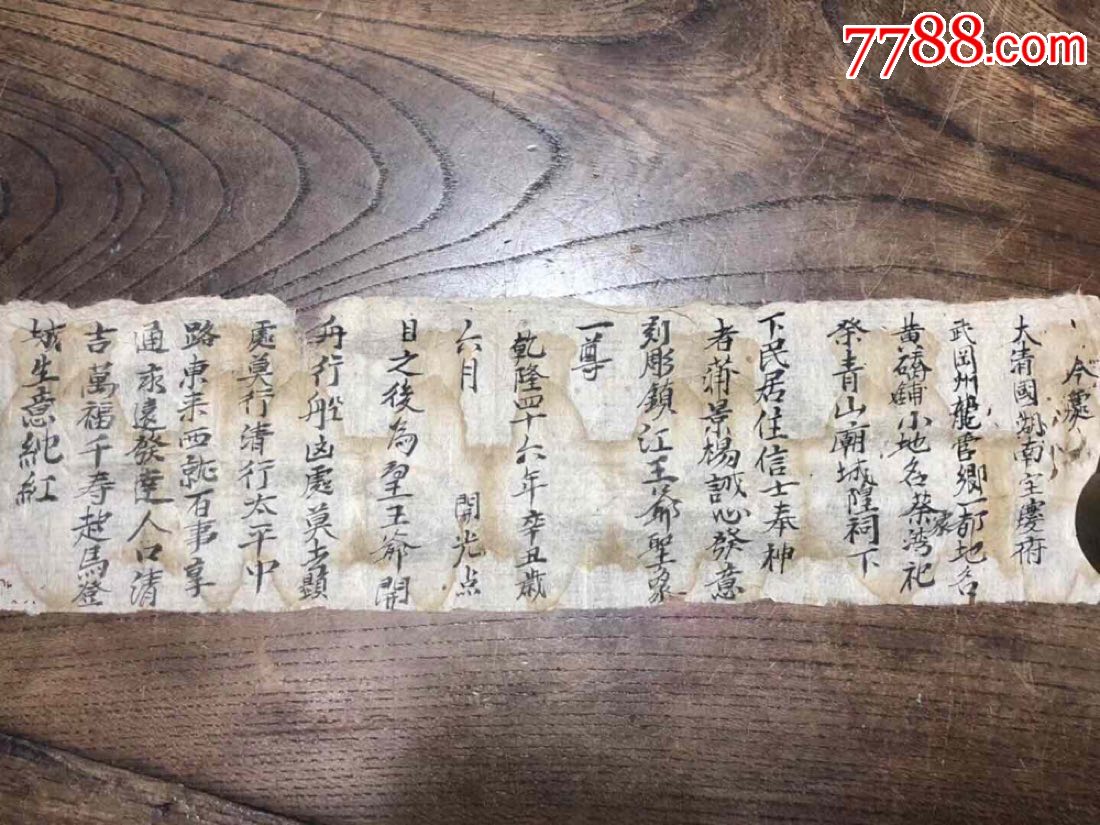 7788.com
今處
大清國湖南宝慶府
武岡州龍官鄉一都地名
黄磚鋪小地名蔡家湾祀
祭青山廟城隍祠下
下民居住信士奉神
者蒲景楊誠心發意
刻彫鎮江王爺聖象
一尊
乾隆四十六年辛丑歳
六月 開光点
目之後為望王爺開
舟行船凶處莫去顕
處莫行清行太平中
路東来西就百事享
通永遠發達人口清
吉萬福千寿
生意純紅